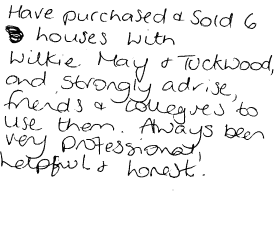 Have purchased & Sold 6
houses with
Wilkie May & Tuckwood,
and strongly advise,
friends & collegves to
use them. Always been
very professional,
helpful & honest.